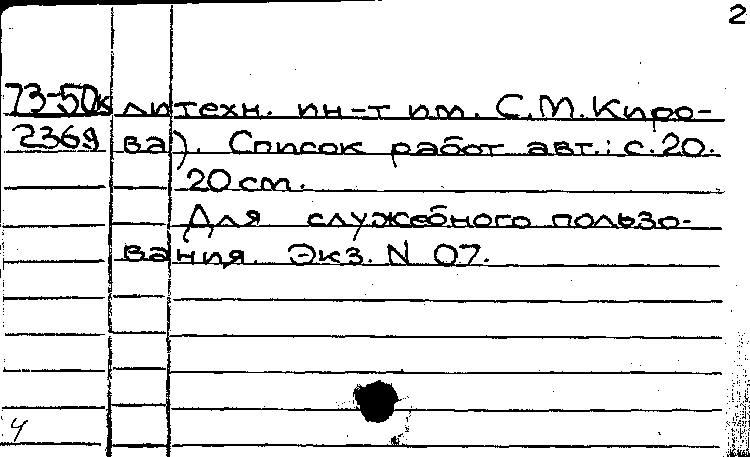 2
73-50к литехн. ин-т им. С.М.Киро-
2369 ва). Список работ авт.: с.20.
20 cm.
Для служебного пользо-
вания. Экз. N 07.
4